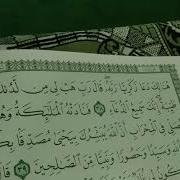 هُنَالِكَ دَعَا زَكَرِيَّا رَبَّهُ قَالَ رَبِّ هَبْ لِي مِن لَّدُنكَ
طَيِّبَةً إِنَّكَ سَمِيعُ الدُّعَاءِ ٣٨ فَنَادَتْهُ الْمَلَائِكَةُ وَهُوَ
فِي الْمِحْرَابِ أَنَّ اللَّهَ يُبَشِّرُكَ بِيَحْيَى مُصَدِّقًا
وَسَيِّدًا وَحَصُورًا وَنَبِيًّا مِّنَ الصَّالِحِينَ ٣٩